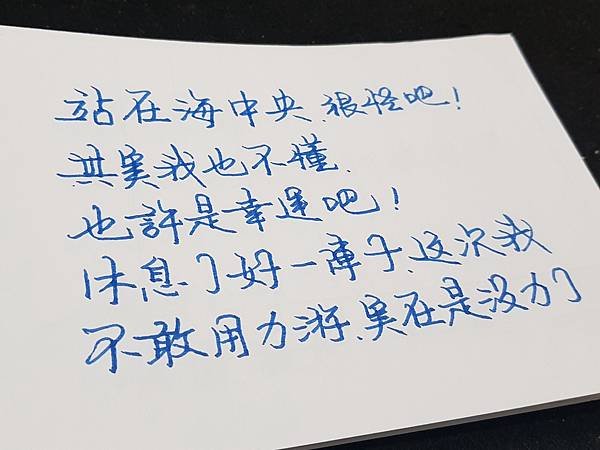 站在海中央.很怪吧!
其實我也不懂.
也許是幸運吧!
休息了好一陣子.这次我
不敢用力游.實在是沒力了